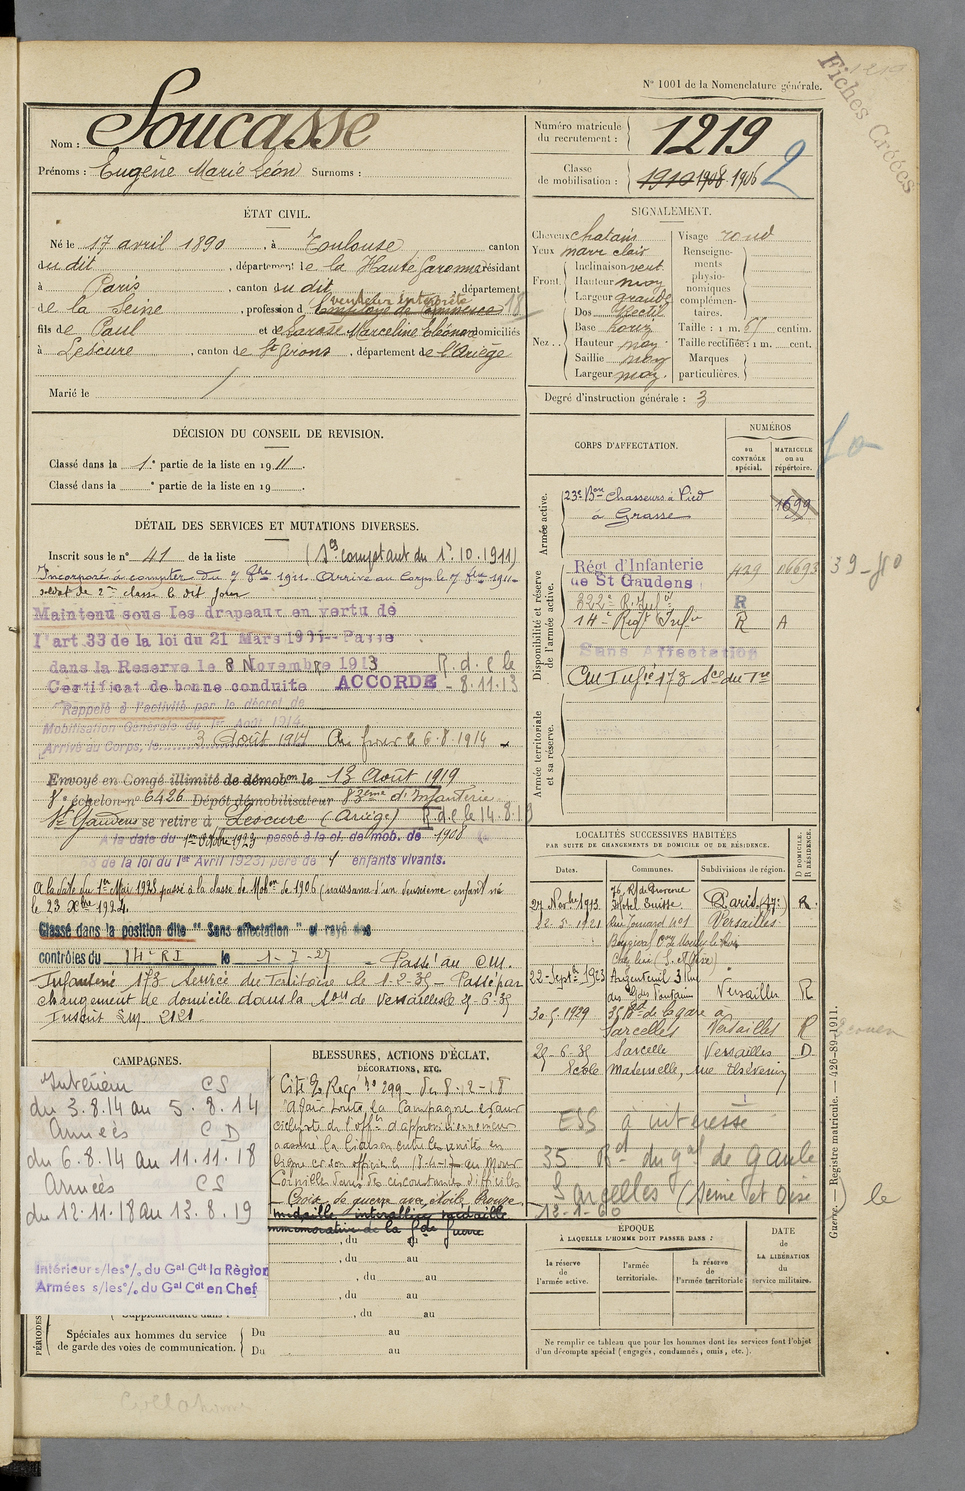 N° 1001 de la Nomenclature générale.
1219
Fiches Créées
Nom : Soucasse
Prénoms : Eugène Marie Léon Surnoms :
Numéro matricule du recrutement : 1219
Classe de mobilisation : 1910 1908 1906
2
ÉTAT CIVIL.
Né le 17 avril 1890, à Toulouse canton
du dit, département de la Haute Garonne résidant
à Paris, canton du dit département
de la Seine, profession d' Employé de Commerce vendeur interprète 18
fils de Paul et de Sarase Marceline Eléonore domiciliés
à Lescure, canton de St Girons, département de l'Ariège
Marié le /
SIGNALEMENT.
Cheveux chatain
Yeux marr clair
Front. Inclinaison vert.
Hauteur moy
Largeur grande
Nez. Dos Rectil
Base horiz
Hauteur moy.
Saillie moy
Largeur moy.
Visage rond
Renseignements physionomiques complémentaires.
Taille : 1 m. 67 centim.
Taille rectifiée : 1 m. cent.
Marques particulières.
Degré d'instruction générale : 3
DÉCISION DU CONSEIL DE REVISION.
Classé dans la 1e partie de la liste en 1911.
Classé dans la ° partie de la liste en 19 .
DÉTAIL DES SERVICES ET MUTATIONS DIVERSES.
Inscrit sous le n° 41 de la liste (Sce comptant du 1r.10.1911)
Incorporé à compter du 7 8bre 1911. Arrivé au Corps le 7 8bre 1911.
soldat de 2me classe le dit jour
Maintenu sous les drapeaux en vertu de
l'art.33 de la loi du 21 Mars 1905 - Passé
dans la Reserve le 8 Novembre 1913 R. d. e le
Certificat de bonne conduite ACCORDÉ - 8.11.13
Rappelé à l'activité par le décret de
Mobilisation Générale du 1er Août 1914.
Arrivé au Corps, le 3 Août 1914 Au front le 6.8.1914
Envoyé en Congé illimité de démobon le 13 Août 1919
8e échelon n° 6426 Dépôt démobilisateur 83eme d'Infanterie
St Gaudens se retire à Lescure (Ariège) R.d.e le 14.8.19
A la date du 1er 8bre 1923 passé à la cl. de mob. de 1908
de la loi du 1er Avril 1923) père de 1 enfants vivants.
A la date du 1er Mai 1925 passé à la classe de Mobon de 1906 (naissance d'un deuxième enfant né
le 23 Xbre 1924.
Classé dans la position dite "Sans affectation" et rayé des
contrôles du 14e RI le 1-7-27 - Passé au CM.
Infanterie 173 Service du Territoire le 1-2-35 - Passé par
changement de domicile dans la Son de Versailles le 29-6-35
Inscrit 2121
CORPS D'AFFECTATION.
NUMÉROS
au CONTRÔLE spécial.
MATRICULE ou au répertoire.
Armée active.
23e Bon Chasseurs à Pied 1699
à Grasse
Disponibilité et réserve de l'armée active.
Régt d'Infanterie de St Gaudens 429 06693
39-40
322e R. Infie R
14e Régt Infie R A
Sans Affectation
CM Infie 173 Sce du Tre
Armée territoriale et sa réserve.
LOCALITÉS SUCCESSIVES HABITÉES
PAR SUITE DE CHANGEMENTS DE DOMICILE OU DE RÉSIDENCE.
Dates.
Communes.
Subdivisions de région.
D DOMICILE. R RÉSIDENCE.
27 Novbre 1913 76, R. de Provence Hôtel Suisse. Paris R.
12.5.1921 Versailles
22-Septbre 1923 Argenteuil 3 Rue Versailles R
30.5.1929 35 Bd de la gare à Sarcelles Versailles R Ecouen
29-6-35 Sarcelle Versailles D
Ecole Maternelle, rue
ESS à intéressé
35 Bd du gal de Gaulle
Sarcelles (Seine et Oise) le
12-1-60
CAMPAGNES.
Intérieur CS
du 3.8.14 au 5.8.14
Armées CD
du 6.8.14 au 11.11.18
Armées CS
du 12.11.18 au 13.8.19
Intérieur s/les o/. du Gal Cdt la Région
Armées s/les o/. du Gal Cdt en Chef
BLESSURES, ACTIONS D'ÉCLAT,
DÉCORATIONS, ETC.
Cité Regt No 299 du 8-12-18
A fait toute la Campagne
cycliste de l'offer d'approvisionnement
a assuré la liaison entre les unités en
ligne et son officier
dans des circonstances difficiles
Croix de guerre avec étoile bronze
Médaille interalliée médaille
commémorative de la gde guerre
, du au
, du au
, du au
, du au
, du au
Supplémentaire dans :
PÉRIODES
Spéciales aux hommes du service de garde des voies de communication.
Du au
Du au
ÉPOQUE
À LAQUELLE L'HOMME DOIT PASSER DANS :
la réserve de l'armée active.
l'armée territoriale.
la réserve de l'armée territoriale
DATE de LA LIBÉRATION du service militaire.
Ne remplir ce tableau que pour les hommes dont les services font l'objet
d'un décompte spécial (engagés, condamnés, omis, etc.).
Guerre. — Registre matricule. — 426-89-1911.